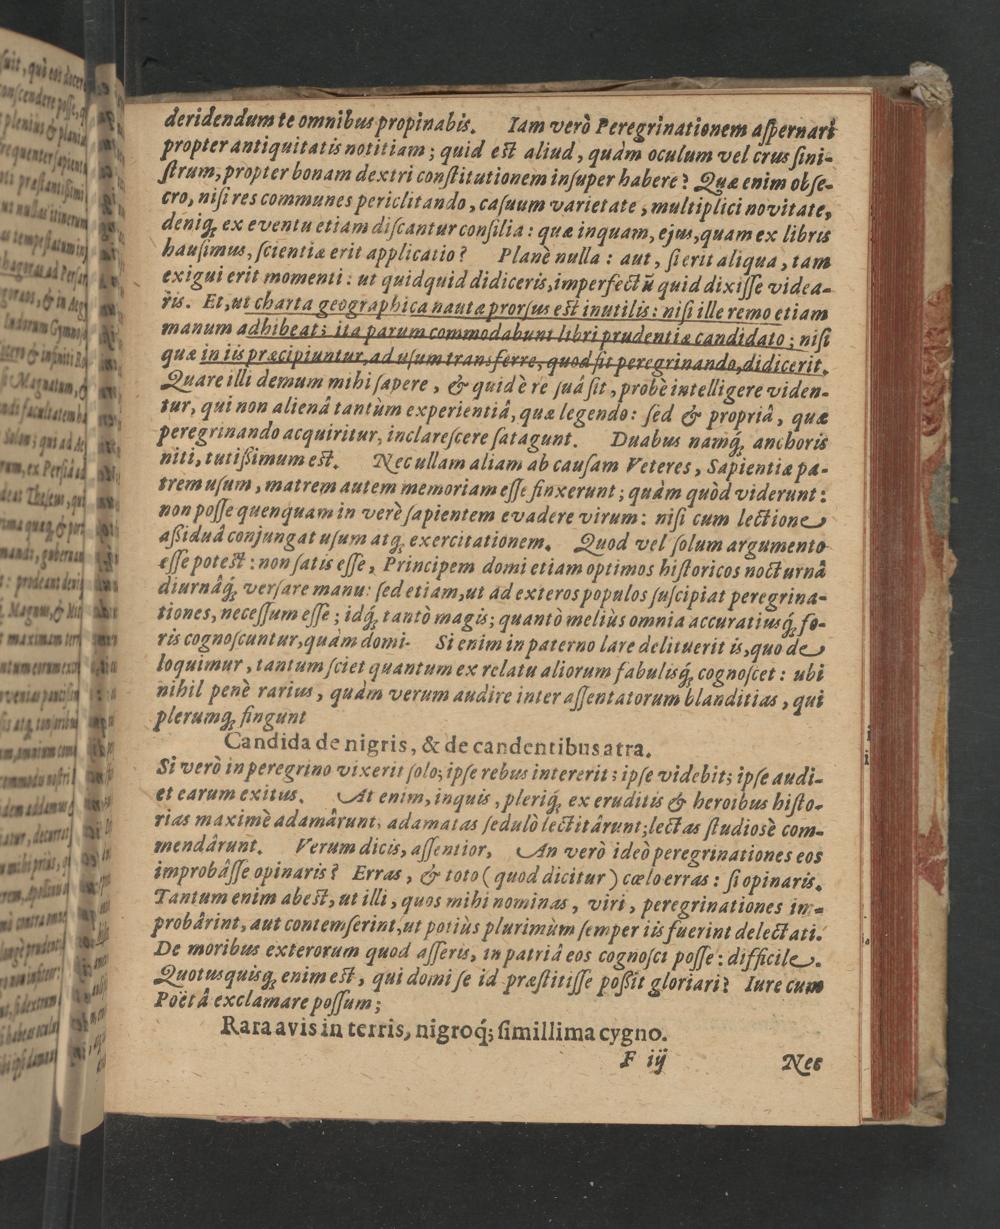 deridendum te omnibus propinabis. Iam verò Peregrinationem aſpernari
propter antiquitatis notitiam; quid eſt aliud, quàm oculum vel crus ſini-
ſtrum, propter bonam dextri conſtitutionem inſuper habere? Quæ enim obſe-
cro, niſi res communes periclitando, caſuum varietate, multiplici novitate,
deniq́; ex eventu etiam diſcantur conſilia: quæ inquam, ejus, quam ex libris
hauſimus, ſcientiæ erit applicatio? Planè nulla: aut, ſi erit aliqua, tam
exigui erit momenti: ut quidquid didiceris, imperfectũ quid dixiſſe videa-
ris. Et, ut charta geographica nautæ prorſus eſt inutilis: niſi ille remo etiam
manum adhibeat: ita parum commodabunt libri prudentiæ candidato; niſi
quæ in iis præcipiuntur, ad uſum transferre, quod fit peregrinando, didicerit.
Quare illi demum mihi ſapere, & quid è re ſuâ ſit, probè intelligere viden-
tur, qui non alienâ tantùm experientiâ, quæ legendo: ſed & propriâ, quæ
peregrinando acquiritur, inclareſcere ſatagunt. Duabus namq́; anchoris
niti, tutiſsimum eſt. Nec ullam aliam ab cauſam Veteres, Sapientiæ pa-
trem uſum, matrem autem memoriam eſſe finxerunt; quàm quòd viderunt:
non poſſe quenquam in verè ſapientem evadere virum: niſi cum lectione
aſsiduâ conjungat uſum atq; exercitationem. Quod vel ſolum argumento
eſſe poteſt: non ſatis eſſe, Principem domi etiam optimos hiſtoricos nocturnâ
diurnâq́; verſare manu: ſed etiam, ut ad exteros populos ſuſcipiat peregrina-
tiones, neceſſum eſſe; idq́; tantò magis; quantò meliùs omnia accuratiusq́; fo-
ris cognoſcuntur, quàm domi. Si enim in paterno lare delituerit is, quo de
loquimur, tantum ſciet quantum ex relatu aliorum fabulisq́; cognoſcet: ubi
nihil penè rarius, quàm verum audire inter aſſentatorum blanditias, qui
plerumq́; fingunt
Candida de nigris, & de candentibus atra.
Si verò in peregrino vixerit ſolo; ipſe rebus intererit; ipſe videbit; ipſe audi-
et earum exitus. At enim, inquis, pleriq́; ex eruditis & heroibus hiſto-
rias maximè adamârunt, adamatas ſedulò lectitârunt; lectas ſtudiosè com-
mendârunt. Verum dicis, aſſentior. An verò ideò peregrinationes eos
improbâſſe opinaris? Erras, & toto (quod dicitur) cœlo erras: ſi opinaris.
Tantum enim abeſt, ut illi, quos mihi nominas, viri, peregrinationes im-
probârint, aut contemſerint, ut potiùs plurimùm ſemper iis fuerint delectati.
De moribus exterorum quod aſſeris, in patriâ eos cognoſci poſſe: difficile.
Quotusquisq́; enim eſt, qui domi ſe id præſtitiſſe poſſit gloriari? Iure cum
Poëtâ exclamare poſſum;
Rara avis in terris, nigroq́; ſimillima cygno.
F iij
Nec